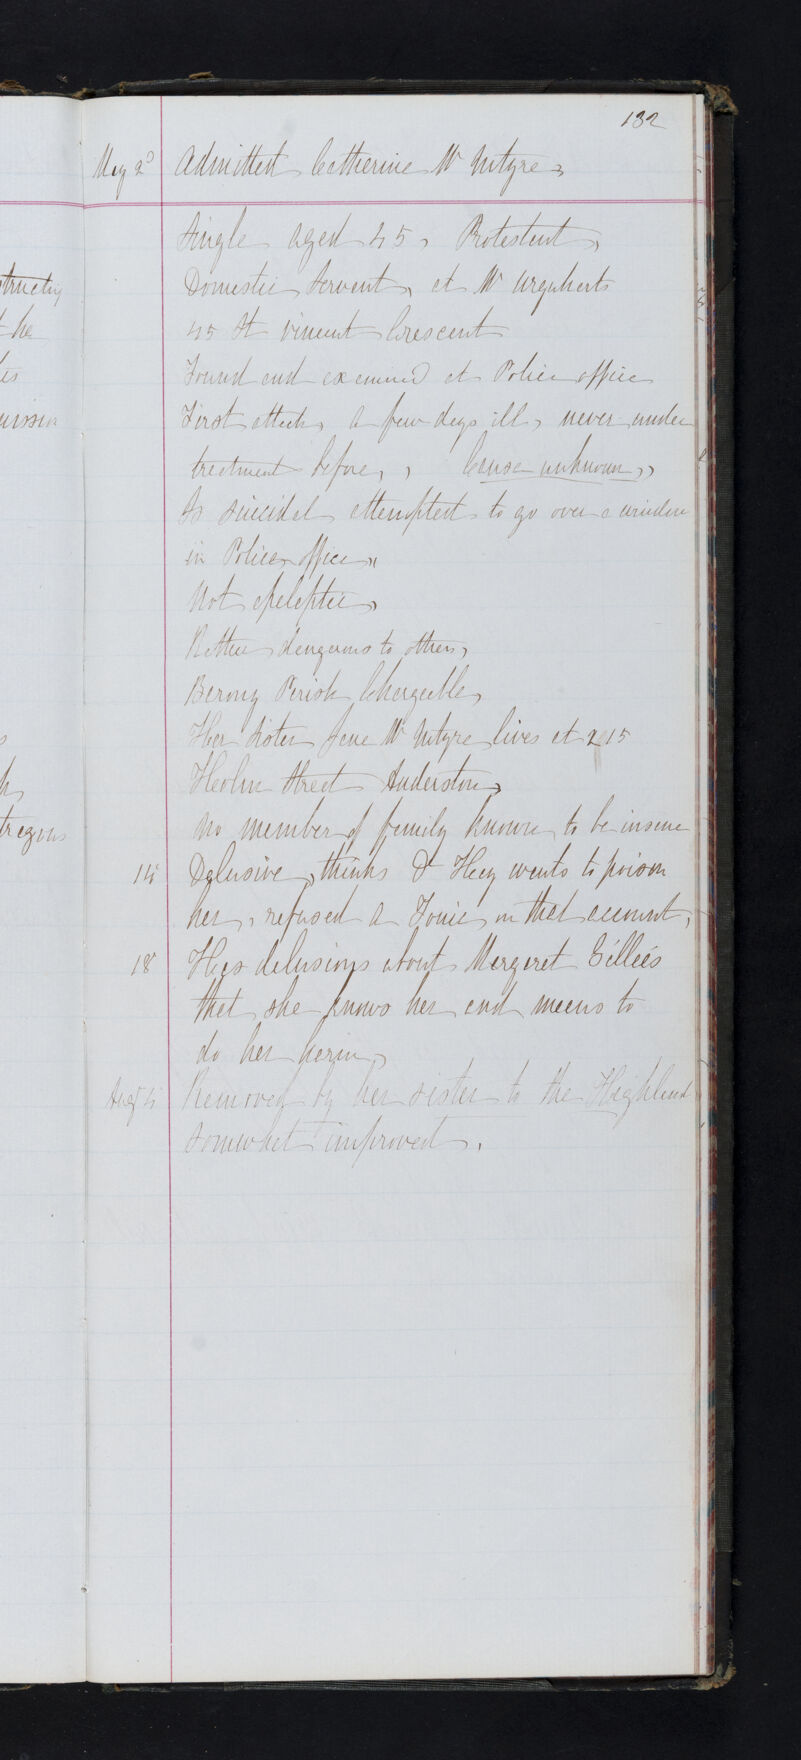 132
May 2d Admitted Catherine Mc Intyre,
Single aged 45, Protestant,
structing
Domestic Servant, at Mr Urquharts
t he
45 St Vincent Crescent
Found and examined at Police office
First attack, a few days ill, never under
treatment before,, Cause unknown,,
Is suicidal attempted to go over a window
in Police office,,
Not epeleptic,
Rather dangerous to others,
Barony Parish Chargeable,
Her Sister Jane Mc Intyre lives at 215
Street Anderston,
No member of family known to be insane
14 Delusive, thinks Dr wants to poison
her, refused a Tonic on that account,
18 Has delusions about Margaret Gillies
that she knows her and means to
do her harm,
Augt 4 Removed by her sister to the Highland
somwhat improved.